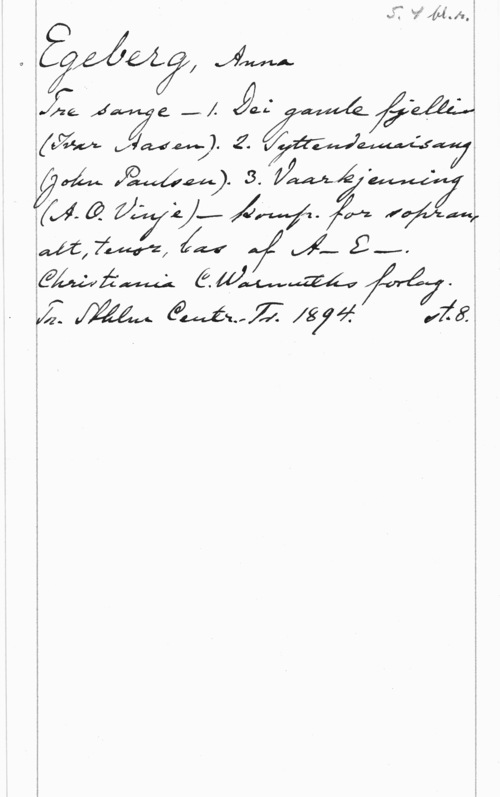 S. 4 bl. n.
Egeberg, Anna
Tre sange – 1. Dei gamle fjelli
(Ivar Aasen). 2. Syttendemaisang
(John Paulsen). 3. Vaarkjenning
(A. O. Vinje) – komp. for sopran,
alt, tenor, bas af A – E –.
Christiania C. Warmuths forlag.
Tr. Sthlm Centr.-Tr. 1894. st. 8.